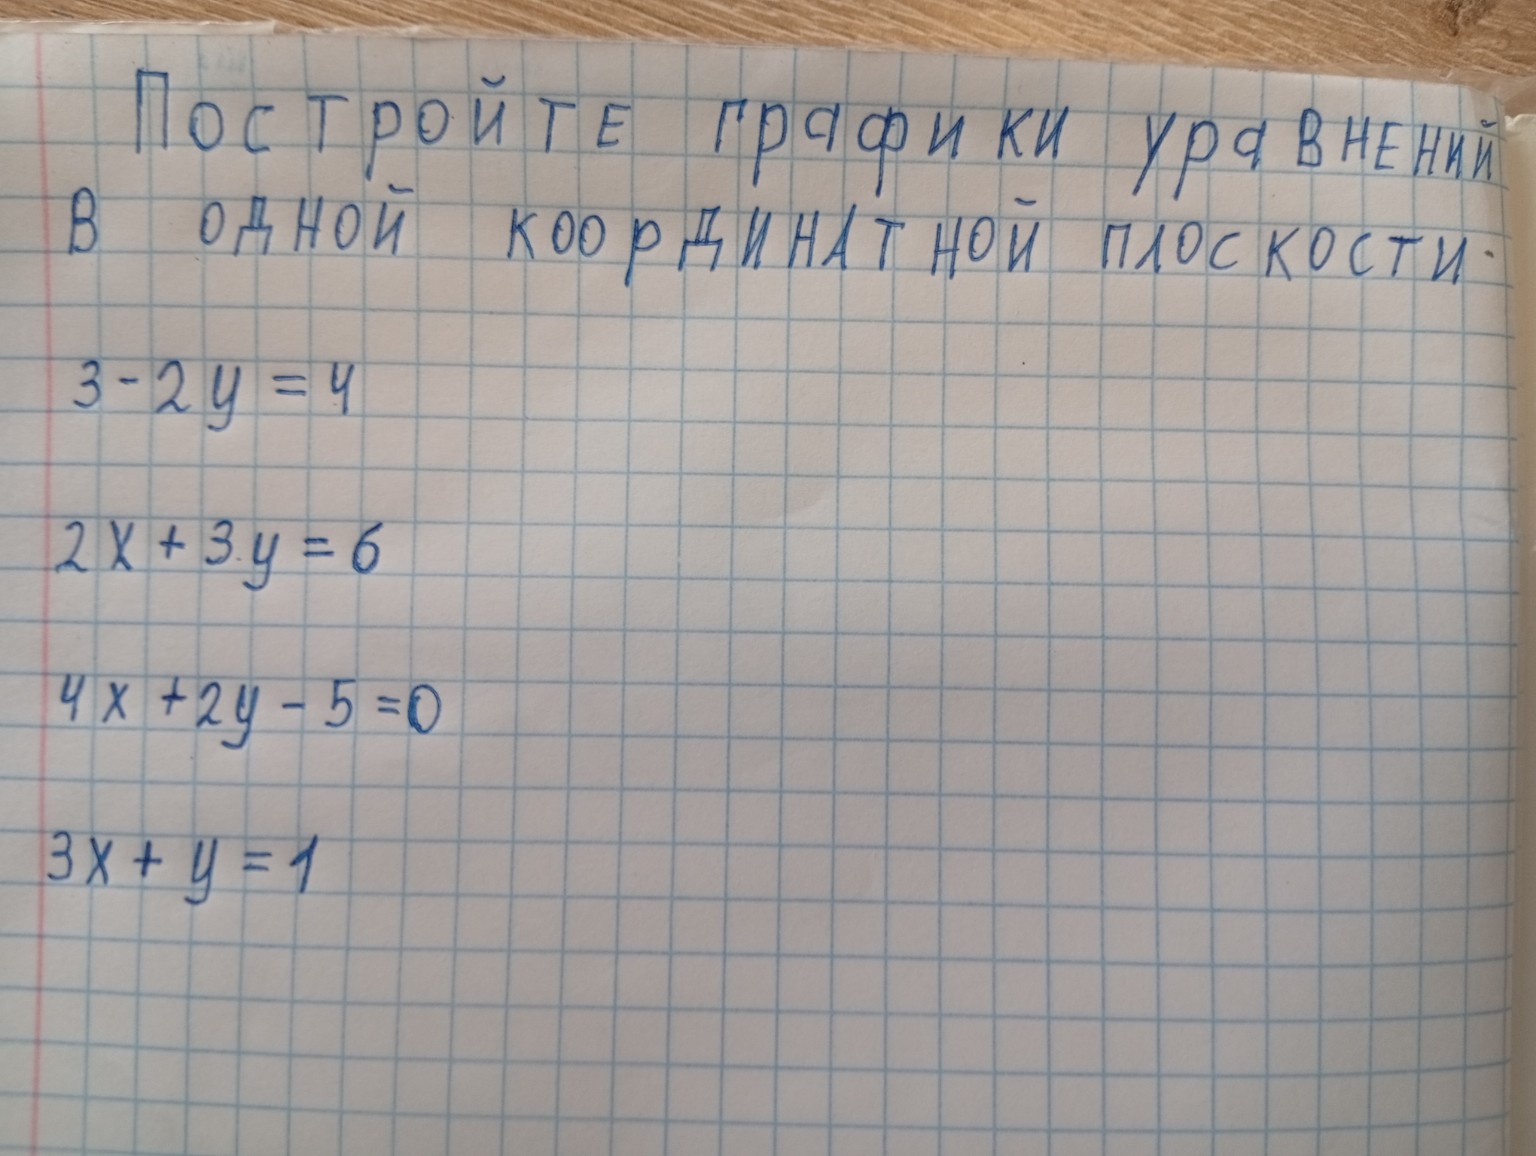 Постройте графики уравнений
в одной координатной плоскости.
3 - 2y = 4
2x + 3y = 6
4x + 2y - 5 = 0
3x + y = 1